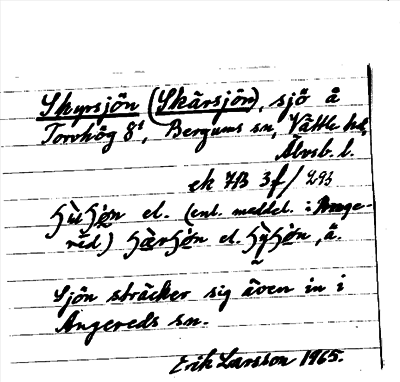 Skyrsjön (Skärsjön), sjö å
Torvhög 8¹, Bergums sn, Vättle hd,
Älvsb. l.
ek 7B 3f/
el. (enl. meddel. i Ange-
red) el. , ä.
Sjön sträcker sig även in i
Angereds sn.
Erik Larsson 1965.